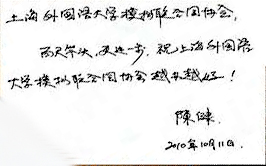 上海外国语大学模拟联合国协会，
百尺竿头，更进一步。祝上海外国语
大学模拟联合国协会越办越好！
陳健
2010年10月11日.